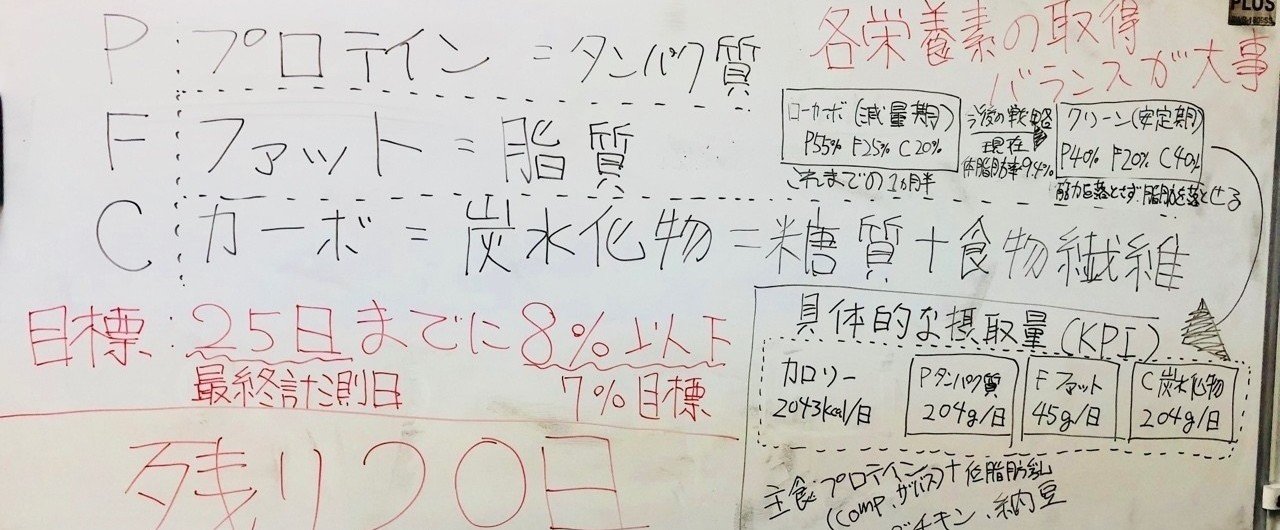 P:プロテイン=タンパク質
F ファット=脂質
C カーボ=炭水化物=糖質+食物繊維
各栄養素の取得
バランスが大事
ローカーボ(減量期)
P55% F25% C20%
これまでの1ヵ月半
今後の戦略
現在
体脂肪率9.4%
クリーン(安定期)
P40% F20% C40%
筋力を落とさず脂肪を落とせる
目標:25日までに8%以下
最終計測日
7%目標
残り20日
具体的な摂取量(KPI)
カロリー
2043kcal/日
Pタンパク質
204g/日
Fファット
45g/日
C炭水化物
204g/日
主食:プロテイン+低脂肪乳
(comp、ザバス)
チキン、納豆
PLUS